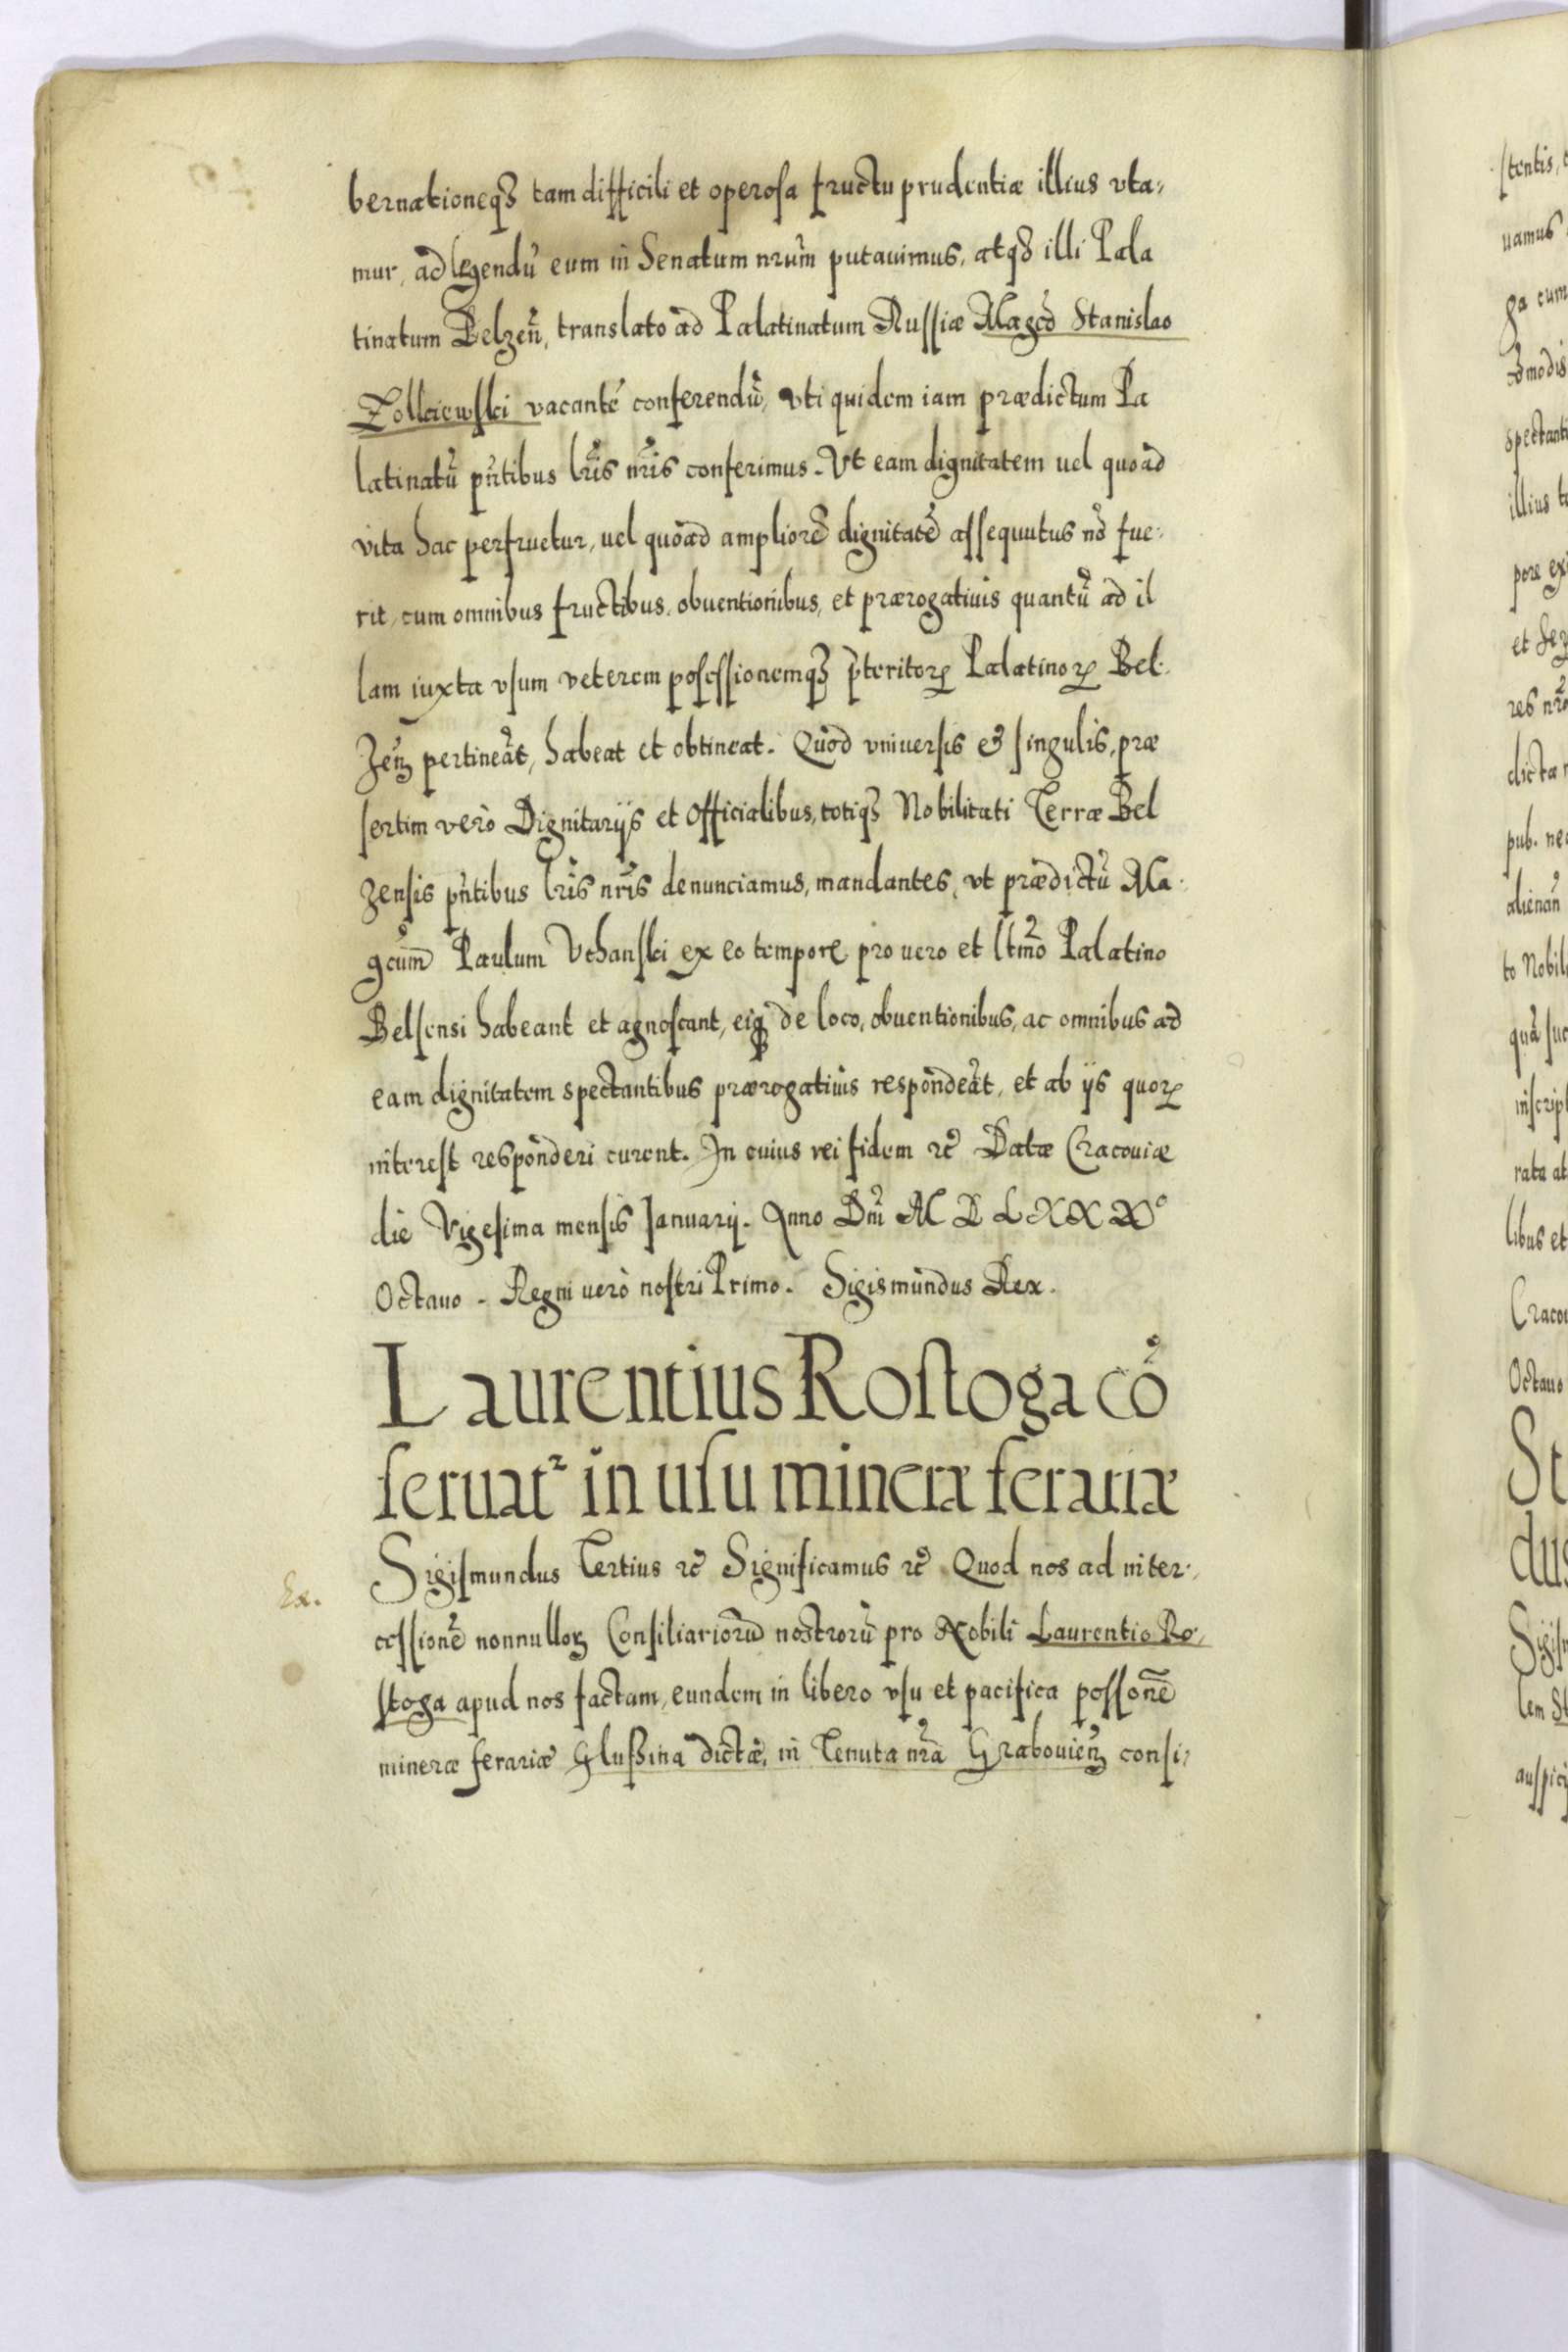 bernationeq₃ tam difficili et operosa fructu prudentiæ illius vta,
mur, ad legendũ eum in Senatum nrũm putauimus, atq₃ illi Pala
tinatum Belzeñ, translato ad Palatinatum Russiæ Magcõ Stanislao
Zolkiewski vacantẽ conferendũ, vti quidem iam prædictum Pa
latinatũ pñtibus lrĩs nrĩs conferimus. Vt eam dignitatem uel quoad
vita hac perfruetur, uel quoad ampliorẽ dignitatẽ assequutus nõ fue,
rit, cum omnibus fructibus, obuentionibus, et prærogatiuis quantũ ad il
lam iuxta vsum veterem posessionemq₃ p̃teritoꝝ Palatinoꝝ Bel,
zeñ pertineãt, habeat et obtineat. Quod vniuersis & singulis, præ
sertim verò Dignitarijs et Officialibus, totiq₃ Nobilitati Terræ Bel
zensis pñtibus lrĩs nrĩs denunciamus, mandantes, vt prædictũ Ma,
gcum̃ Paulum Vchanski ex eo tempore pro uero et ltmõ Palatino
Belsensi habeant et agnoscant, eiq₃ de loco, obuentionibus, ac omnibus ad
eam dignitatem spectantibus prærogatiuis respondeãt, et ab ijs quoꝝ
interest responderi curent. In cuius rei fidem ꝛc̃ Datæ Cracouiæ
die Vigesima mensis Ianuarij. Anno Dnĩ M D L XX XX°
Octauo. Regni uerò nostri Primo. Sigismundus Rex.
Laurentius Rostoga cõ
seruat² in usu mineræ ferariæ
Sigismundus Tertius ꝛc̃ Significamus ꝛc̃ Quod nos ad inter,
cessionẽ nonnulloꝝ Consiliariorũ nostrorũ pro Nobili Laurentio Ro,
Ex.
stoga apud nos factam, eundem in libero vsu et pacifica possonẽ
mineræ ferariæ Glussina dictæ, in Tenuta nrã Grabouieñ consi,